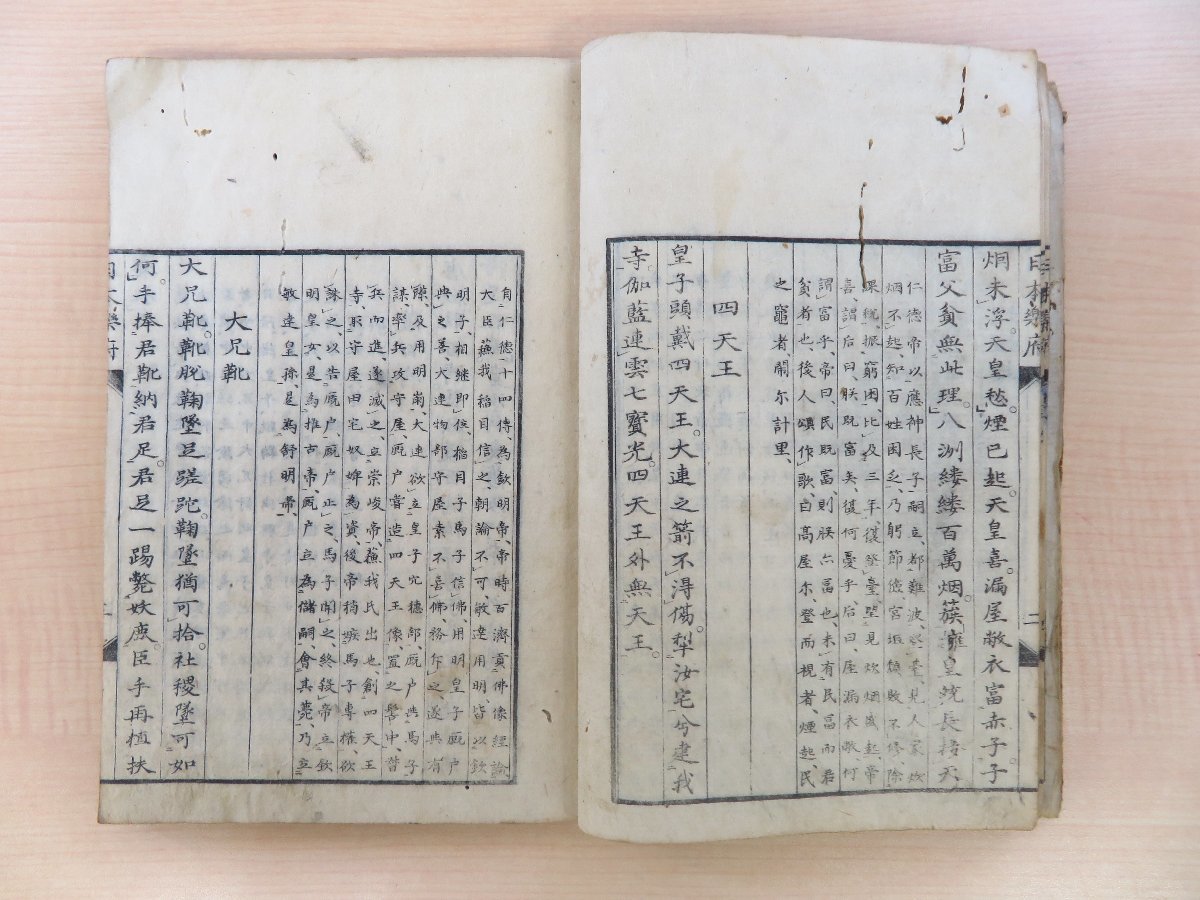 日本樂府 二
炯未浮。天皇愁。煙已起。天皇喜。漏屋敝衣富赤子。子
富父貧無此理。八洲縷縷百萬烟。蔟擁皇統長接天
仁德帝以應神長子嗣立、都難波、登臺、見人家炊
烟不起、知百姓困乏、乃躬節儉、宮垣頹敗不修、除
課稅、振窮困、比及三年、復登臺望見炊烟盛起、帝
喜、謂后曰、朕既富矣、復何憂乎、后曰、屋漏衣敝、何
謂富乎、帝曰、民既富、則朕亦富也、未有民富而君
貧者也、後人頌作歌、白高屋尓、登而視者、煙起、民
之竈者、鬧尓計里、
四天王
皇子頭戴四天王。大連之箭不得傷。犁汝宅兮建我
寺。伽藍連雲七寶光。四天王外無天王。
自仁德十四傳、為欽明帝、帝時百濟貢佛像經論
大臣蘇我稻目信之、朝論不可、敏達用明皆以欽
明子、相繼即位、稻目子馬子信佛、用明皇子厩戶
典之善、大連物部守屋素不喜佛、務斥之、遂典有
隙、及用明崩、大連欲立皇子穴穗部、厩戶典馬子
謀、率兵攻守屋、厩戶嘗造四天王像、置之髻中、督
兵而進、遂滅之、立崇峻帝、蘇我氏出也、創四天王
寺、取守屋田宅奴婢為資、後帝稍嫉馬子專權、欲
誅之、以告厩戶、厩戶止之、馬子聞之、終殺帝、立欽
明皇女、是為推古帝、厩戶立為儲嗣、會其薨、乃立
敏達皇孫、是為舒明帝、
大兄靴
大兄靴。靴脫鞠墜豈蹉跎。鞠墜猶可拾。社稷墜可如
何。手捧君靴納君足。君足一踢斃妖鹿。臣手再植扶
日本樂府